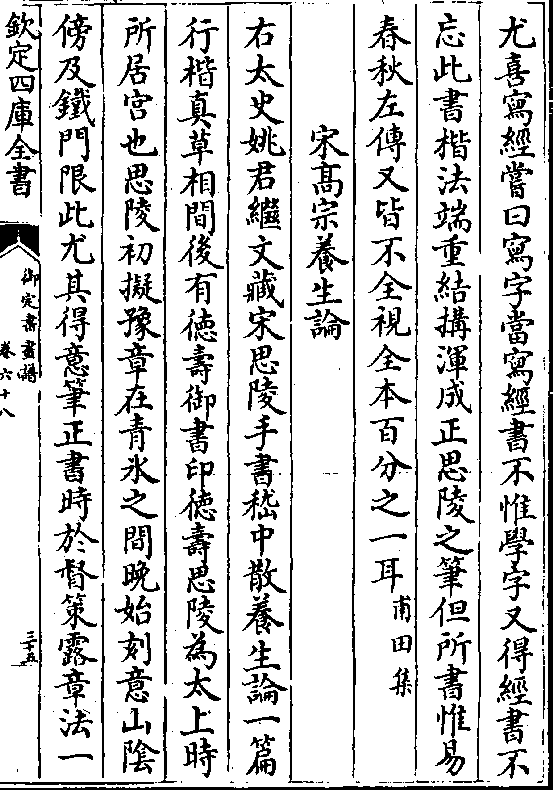 尤喜寫經嘗曰寫字當寫經書不惟學字又得經書不
忘此書楷法端重結搆渾成正思陵之筆但所書惟易
春秋左傳又皆不全視全本百分之一耳甫田集
宋髙宗養生論
右太史姚君繼文藏宋思陵手書嵇中散養生論一篇
行楷真草相間後有徳壽御書印徳壽思陵為太上時
所居宫也思陵初擬豫章在青氷之間晚始刻意山陰
傍及鐵門限此尤其得意筆正書時於督策露章法一
欽定四庫全書
御定書畫譜
卷六十八
三十五